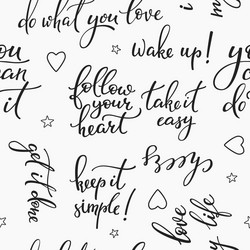 do what you love
you
can
do it
wake up!
follow
your
heart
take it
easy
you
do
get it done
keep it
simple!
love
my life